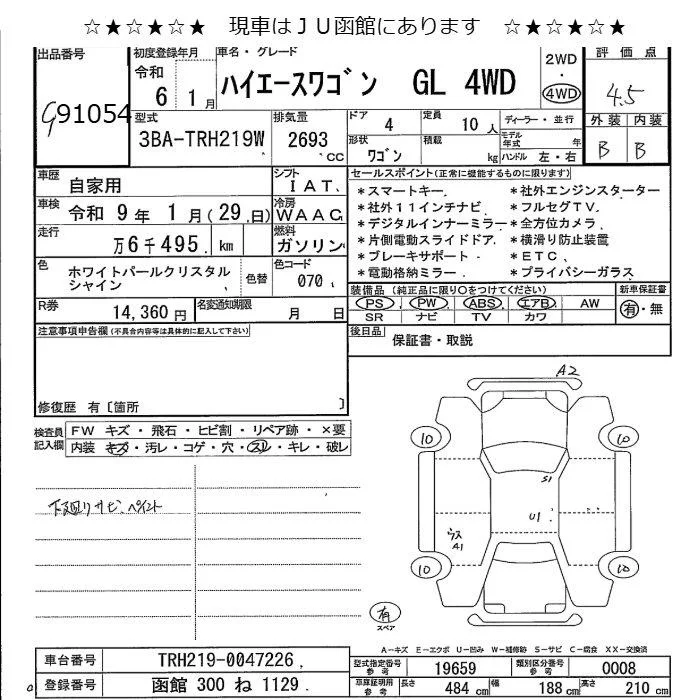 ☆★☆★☆★ 現車はＪＵ函館にあります ☆★☆★☆★
出品番号
91054
初度登録年月
令和
6 1月
車名・グレード
ハイエースワゴン GL 4WD
2WD
・
4WD
評価点
4.5
外装 内装
B B
型式
3BA-TRH219W
排気量
2693
cc
ドア
4
定員
10人
ディーラー・並行
形状
ワゴン
積載
kg
モデル年式 年
ハンドル 左・右
車歴
自家用
シフト
IAT
車検
令和 9年 1月(29日)
冷房
WAAC
走行
万6千495 km
燃料
ガソリン
色
ホワイトパールクリスタル
シャイン
色替
色コード
070
R券
14,360円
名変通知期限
月 日
セールスポイント(正常に機能するものに限ります)
*スマートキー *社外エンジンスターター
*社外11インチナビ *フルセグTV
*デジタルインナーミラー *全方位カメラ
*片側電動スライドドア *横滑り防止装置
*ブレーキサポート *ETC
*電動格納ミラー *プライバシーガラス
装備品(純正品に限り○をつけてください)
PS PW ABS エアB AW
SR ナビ TV カワ
新車保証書
有・無
後日品
保証書・取説
注意事項申告欄(不具合内容等は具体的に記入して下さい)
修復歴 有〔箇所 〕
検査員
記入欄
FW キズ・飛石・ヒビ割・リペア跡・×要
内装 キズ・汚レ・コゲ・穴・スレ・キレ・破レ
下廻りサビ、ペイント
A2
10
10
S1
U1
ウス
A1
10
10
有
スペア
A－キズ E－エクボ U－凹み W－補修跡 S－サビ C－腐食 XX－交換済
車台番号
TRH219-0047226
登録番号
函館 300 ね 1129
型式指定番号
参考
19659
類別区分番号
参考
0008
車庫証明用
参考
長さ
484 cm
幅
188 cm
高さ
210 cm